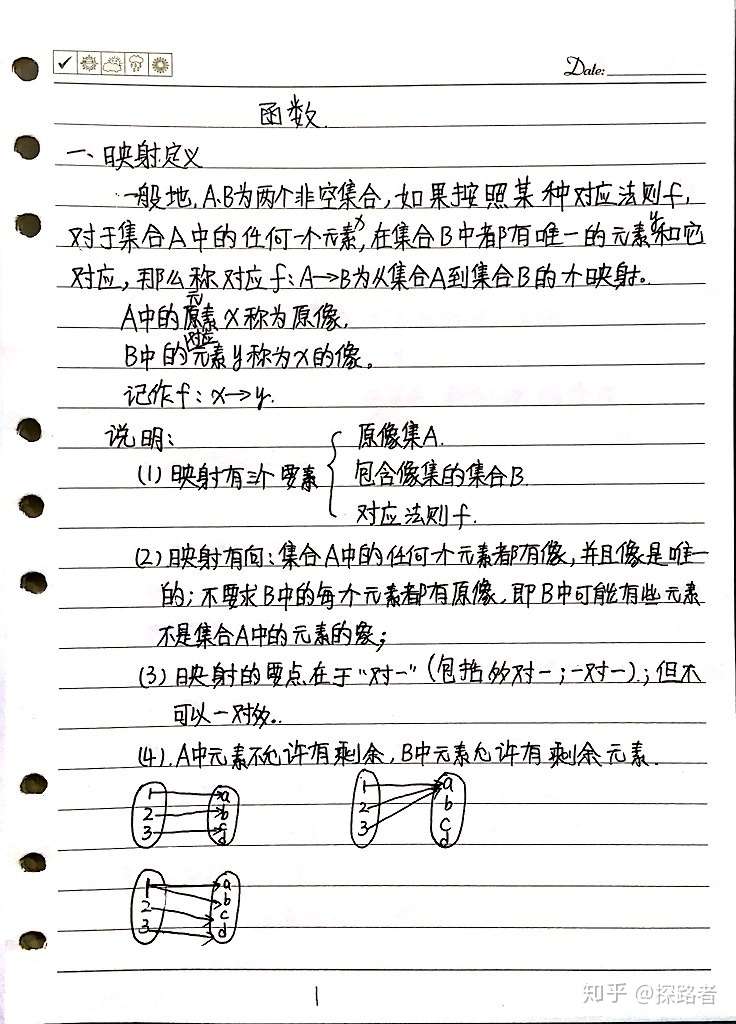 Date:
函数.
一、映射定义
一般地,A、B为两个非空集合,如果按照某种对应法则f,
对于集合A中的任何一个元素x,在集合B中都有唯一的元素y和它
对应,那么称对应f:A→B为从集合A到集合B的一个映射。
A中的元素x称为原像.
B中的对应元素y称为x的像。
记作f:x→y.
说明:
原像集A.
(1)映射有三个要素
包含像集的集合B.
对应法则f.
(2)映射有向:集合A中的任何一个元素都有像,并且像是唯一
的;不要求B中的每个元素都有原像,即B中可能有些元素
不是集合A中的元素的象;
(3)映射的要点在于"对一"(包括多对一;一对一).;但不
可以一对多。
(4).A中元素不允许有剩余,B中元素允许有剩余元素.
1 a
2 b
3 c
d
1 a
2 b
3 c
d
1 a
2 b
3 c
d
1
知乎 @探路者